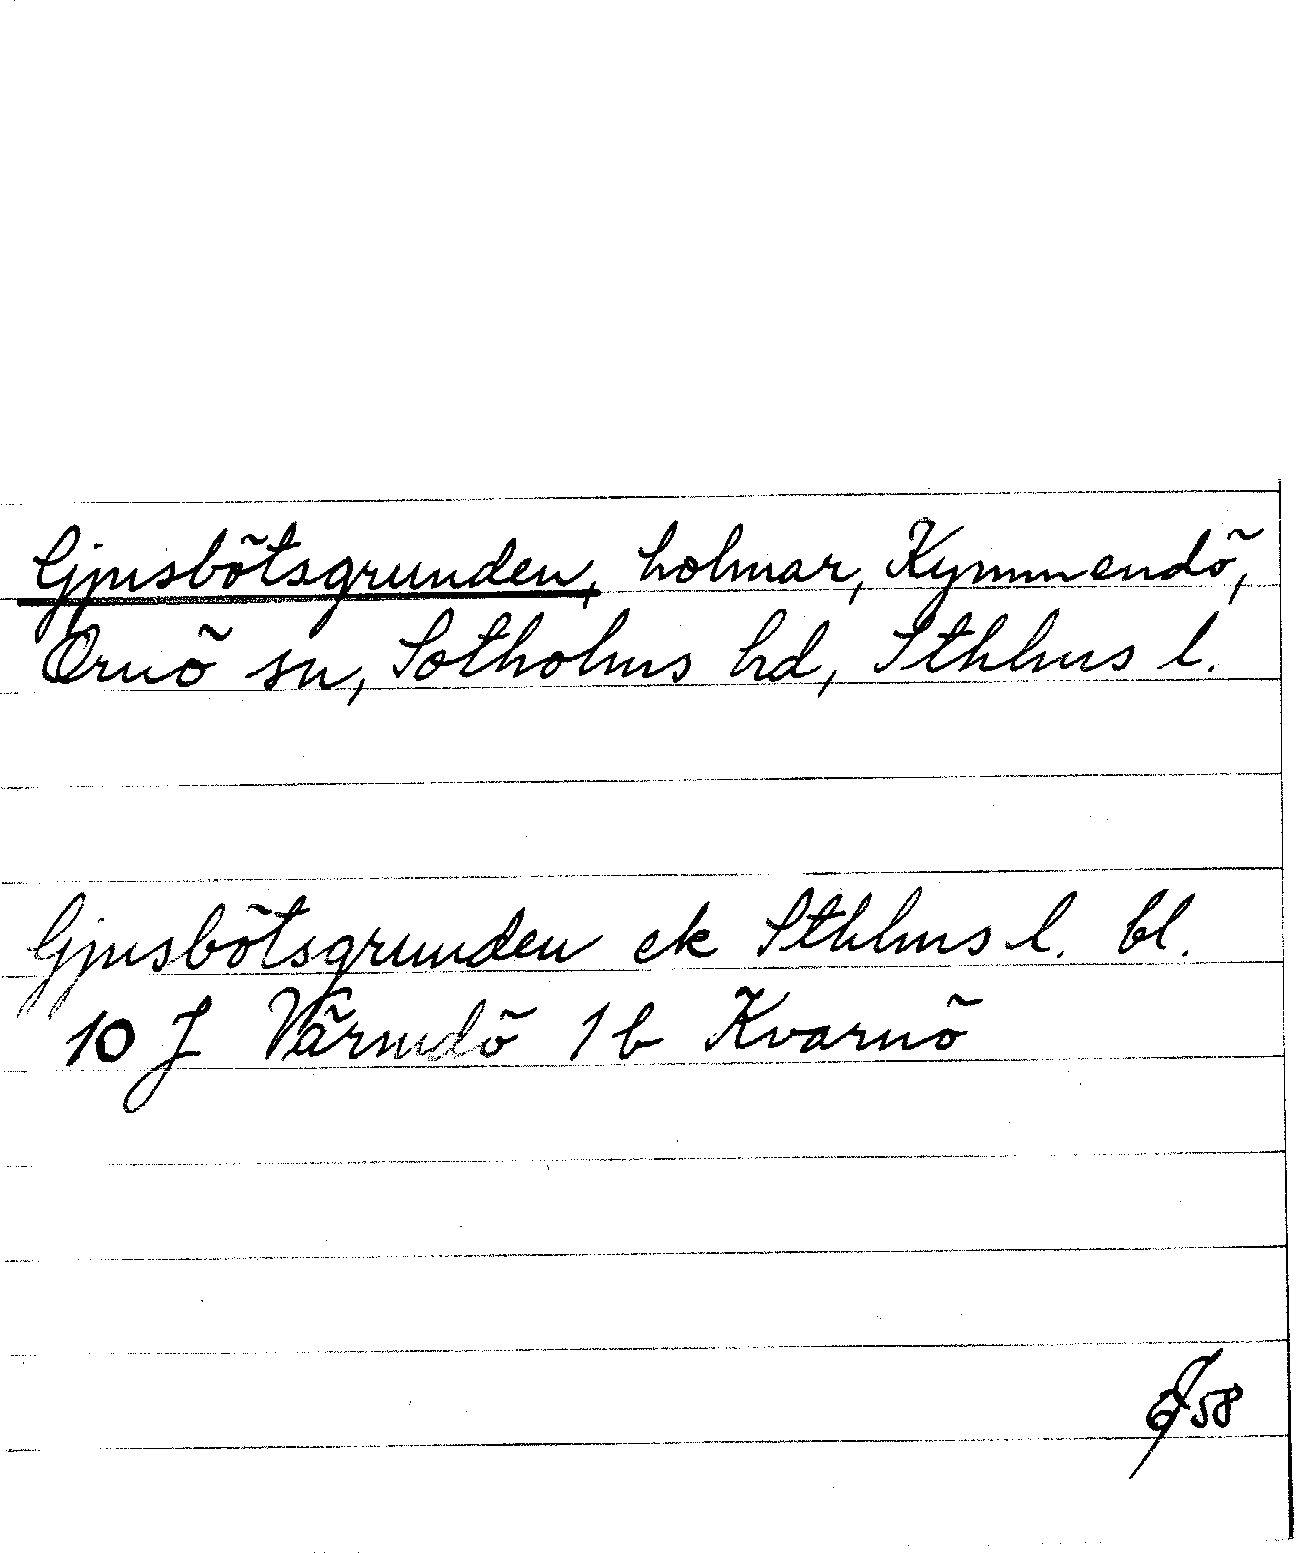 Gjusbötsgrunden, holmar, Kymmendö,
Ornö sn, Sotholms hd, Sthlms l.
Gjusbötsgrunden ek Sthlms l. bl.
10 J Värmdö 1 b Kvarnö
58